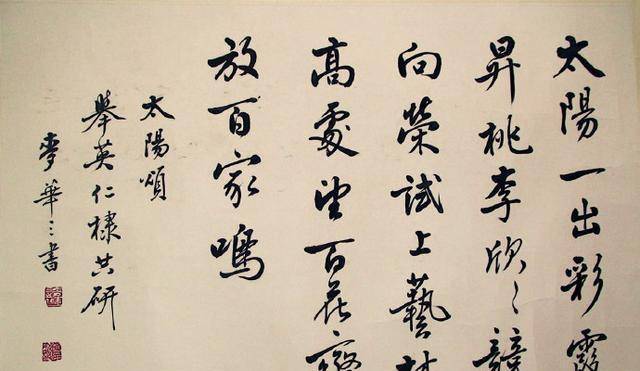 太陽一出彩霞
昇桃李欣〻競
向榮試上藝林
高處望百花齊
放百家鳴
太陽頌
舉英仁棣共研
麥華三書